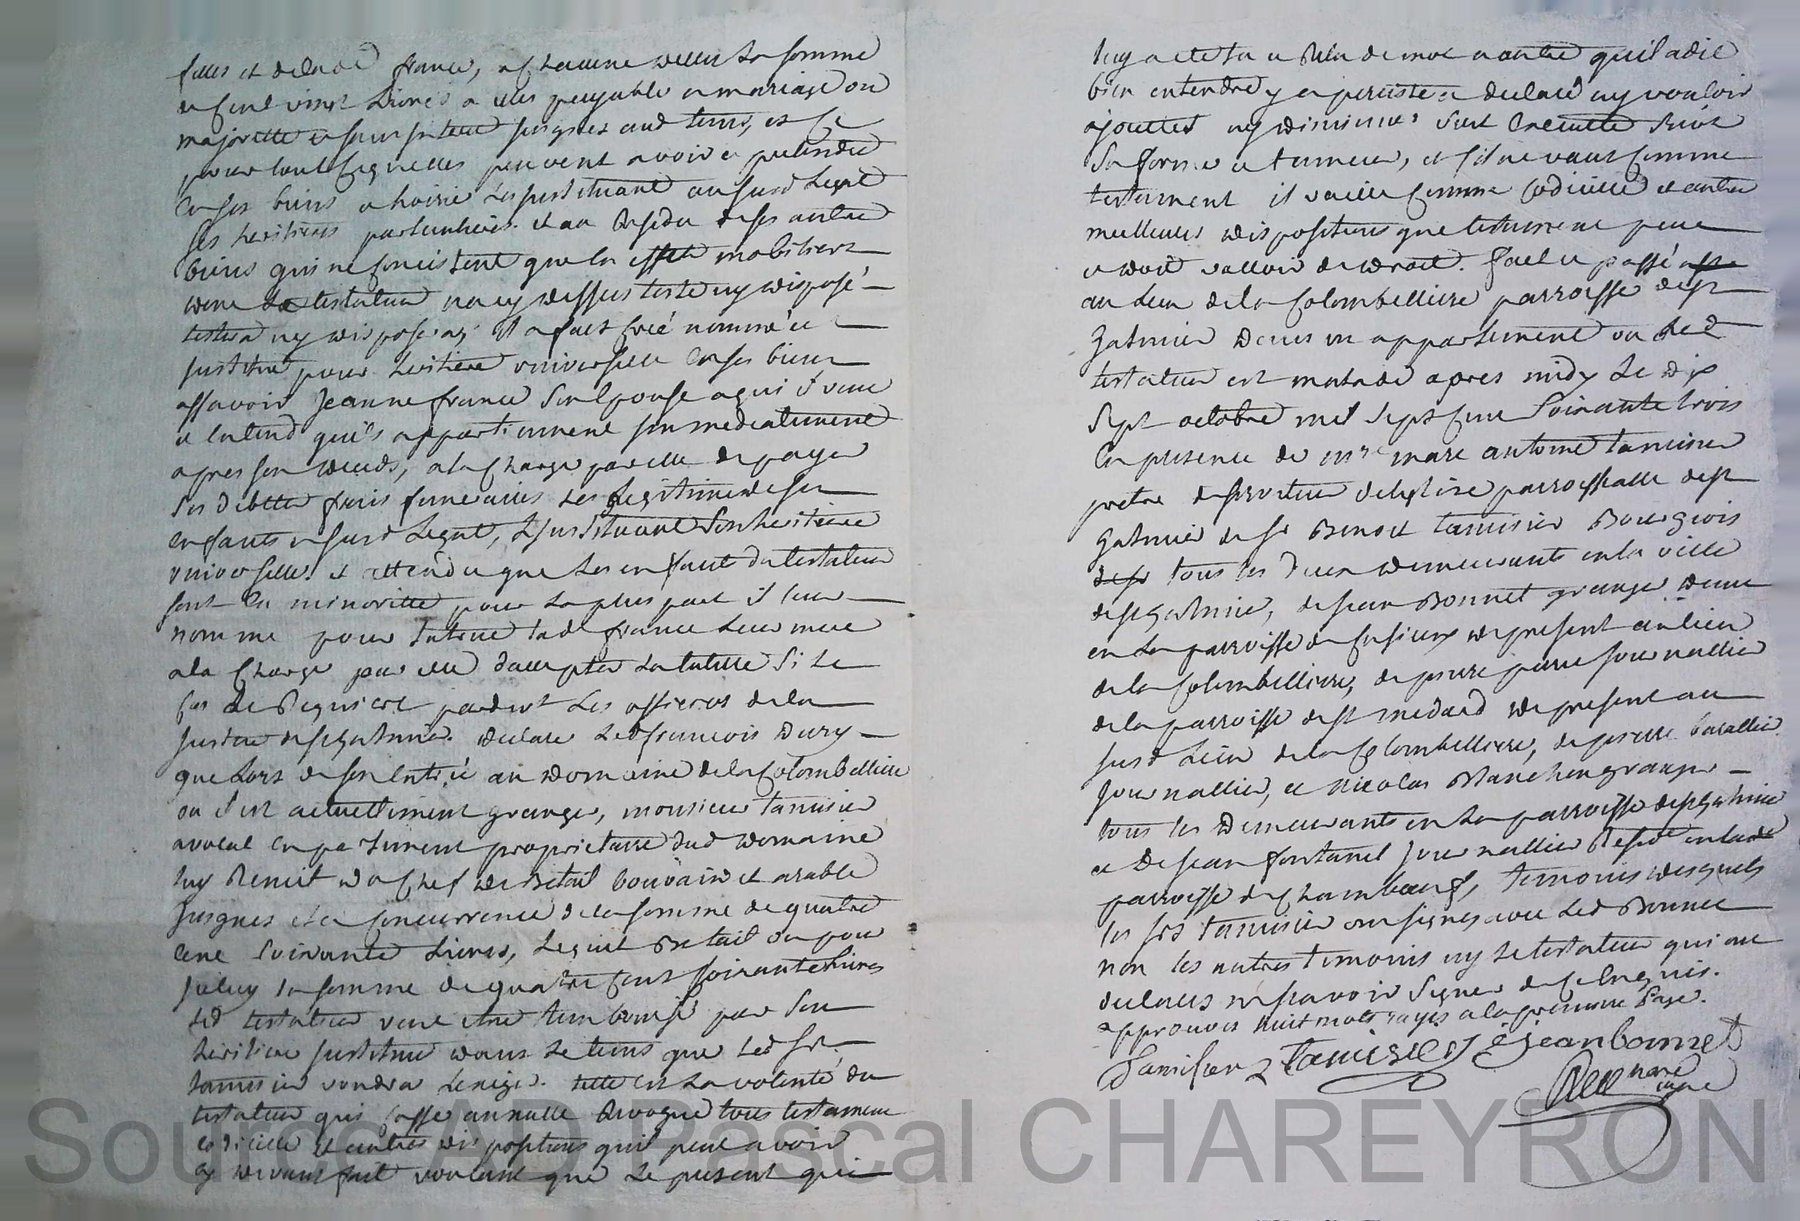 filles et de lade france, a chacune delles la somme
de cent vingt Livres a elles payable en mariage ou
majoritté et sans interest jusques aud tems, et ce
pour tout ce quelles peuvent avoir et pretendre
en ses biens et hoirie Les instituant au susd Legat
ses heritieres particulieres. et au Residu de ses autres
biens qui ne consistent que en effets mobiliers
dont le testateur na cy dessus testé ny disposé
testera ny disposera, il a fait créé nommé et
institué pour heritiere universelle en ses biens
assavoir Jeanne france son Epouse a qui il veut
et Entend quils appartiennent immediatement
apres son deceds, a la charge par elle de payer
ses dettes frais funeraires les Legitimes de ses
enfants en susd Legat, L'instituant son heritiere
universelle. et attendu que Les enfants du testateur
sont En minoritté pour La plus part il leur
nomme pour tutrice lade france Leur mere
a la charge par elle d'accepter La tutelle Si Le
cas Le Requiert pardevt Les officiers de la
Justice de st Galmier. declare Led francois Dury
que Lors de son Entrée au domaine de la Colombelliere
ou il est actuellement granger, monsieur tamisier
avocat en parlement proprietaire dud domaine
luy Remit en chef de Betail bouvain et arable
Jusques a la concurrence de la somme de quatre
cent Soixante Livres, Lequel Betail ou pour
iceluy la somme de quatre cent soixante Livres
Led testateur veut etre Remboursé par Son
heritiere Instituée dans Le tems que Led sr
tamisier voudra L'exiger. telle est La volonté du
testateur qui casse annulle Revoque tous testament
codicille et autres dispositions quil peut avoir
cy devant fait voulant que Le present qui
luy a eté lu et Relu de mot a autre quil a dit
bien entendre y a persisté et declaré ny vouloir
ajoutter ny diminuer Sort L'execute Suivt
Sa forme et teneur, et s'il ne vaut comme
testament il vaille comme codicille et autre
meilleures dispositions que testament peut
et doit valloir de droit. fait et passé
au Lieu de la Colombelliere parroisse de st
Galmier dans un appartement ou Led
testateur est malade apres midy Le dix
Sept octobre mil sept cent Soixante trois
En presence de mre marc antoine tamisier
pretre desserviteur de l'eglise parroissialle de st
Galmier de sr Benoit tamisier Bourgeois
tous les deux demeurants en la ville
de st Galmier, de jean Bonnet granger demt
en La parroisse de Cusieux de present au lieu
de la Colombelliere, de pierre journallier
de la parroisse de st medard de present au
susd Lieu de la Colombelliere, de pierre
journallier, et Nicolas Blanchon granger
tous les demeurants en La parroisse de st Galmier
et de jean fontanel journallier Residt en lade
parroisse de Chambœuf, temoins desquels
les srs tamisier ont signés avec Led Bonnet
non les autres temoins ny Le testateur qui ont
declarés ne scavoir signer de ce Enquis.
approuvés huit mots rayés a la premiere Page.
Tamisier Tamisier jeanbonnet
nore
Source AD Pascal CHAREYRON